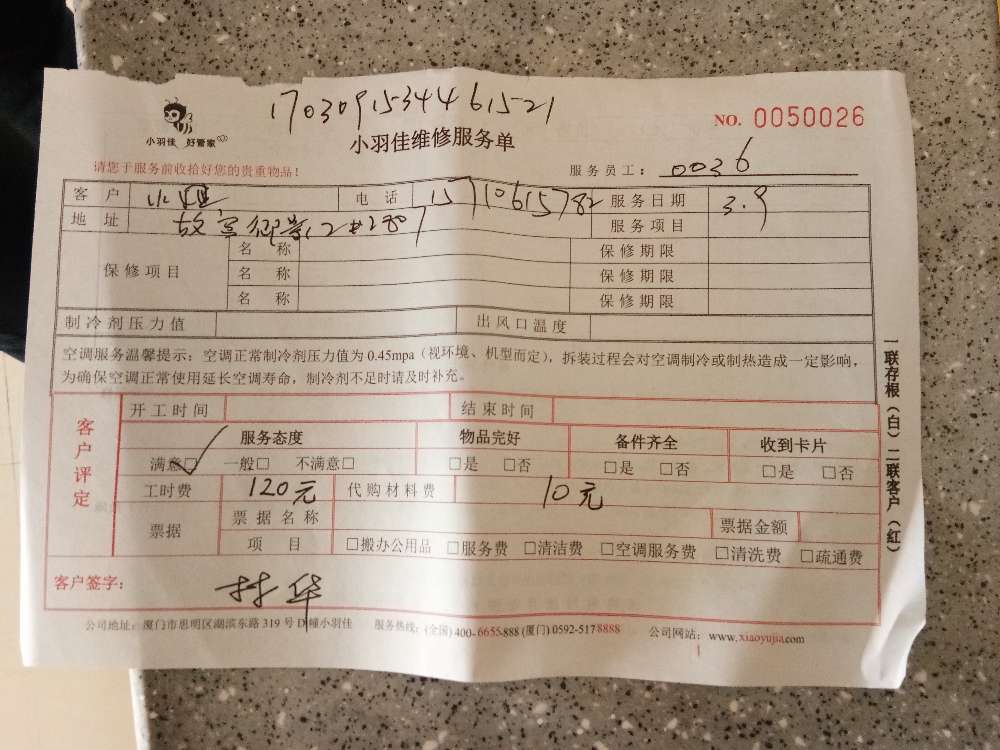 17030915344461521
NO. 0050026
小羽佳 好管家
小羽佳维修服务单
请您于服务前收拾好您的贵重物品！
服务员工： 0036
客户 电话 15710615782 服务日期 3.9
地址 故宫御景12#2801 服务项目
保修项目 名称 保修期限
名称 保修期限
名称 保修期限
制冷剂压力值 出风口温度
空调服务温馨提示：空调正常制冷剂压力值为 0.45mpa（视环境、机型而定），拆装过程会对空调制冷或制热造成一定影响，
为确保空调正常使用延长空调寿命，制冷剂不足时请及时补充。
客户评定
开工时间 结束时间
服务态度 物品完好 备件齐全 收到卡片
满意□ 一般□ 不满意□ □是 □否 □是 □否 □是 □否
工时费 120元 代购材料费 10元
票据 票据名称 票据金额
项目 □搬办公用品 □服务费 □清洁费 □空调服务费 □清洗费 □疏通费
客户签字：
公司地址：厦门市思明区湖滨东路 319 号 D 幢小羽佳 服务热线：(全国) 400-6655-888 (厦门) 0592-5178888 公司网站：www.xiaoyujia.com
一联存根（白）二联客户（红）